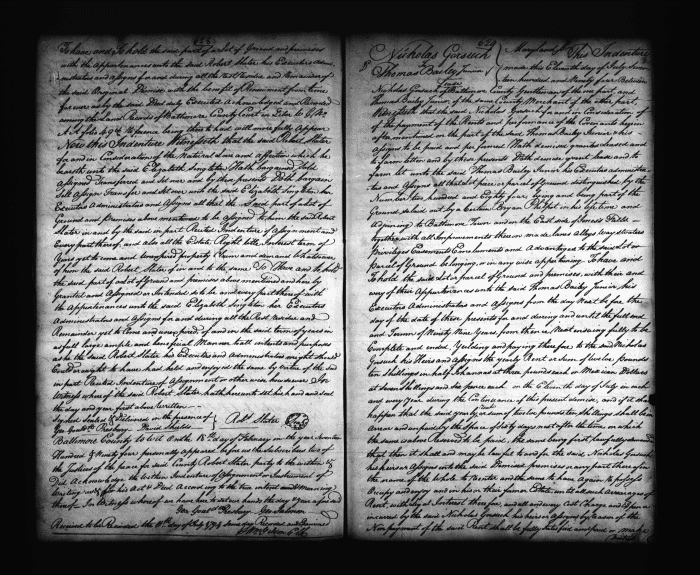 To have and To hold the said part of a Lot of Ground and premises
with the Appurtenances unto the said Robert Slater his Executors Admi
nistrators and Assigns for and during all the Rest Residue and Remainder of
the said Original Demise with the benefit of Renewment from time
for ever as by the said Deed duly Executed Acknowledged and Recorded
among the Land Records of Baltimore County Court in Liber W G No
being thereto had will more fully Appear
Now this Indenture Witnesseth that the said Robert Slater
for and in Consideration of the Natural Love and affection which he
beareth unto the said Elizabeth Singleton Hath bargained Sold
Assigned Transferred and set over and by these presents Doth bargain
Sell Assign Transfer and Set over unto the said Elizabeth Singleton her
Executors Administrators and Assigns all that the said part of a lot of
Ground and Premises above mentioned to be Assigned to him the said Robert
Slater in and by the said in part Recited Indenture of Assignment and
Every part thereof, and also all the Estate Right title, Interest term of
Years yet to come and unexpired property Claim and demand whatsoever
of him the said Robert Slater of in and to the same To Have and to hold
the said part of a lot of Ground and premises above mentioned and hereby
Granted and Assigned or intended so to be and every part thereof with
the Appurtenances unto the said Elizabeth Singleton her Executors
Administrators and Assigns for and during all the Rest Residue and
Remainder yet to Come and unexpired of and in the said term of years in
as full large ample and beneficial Manner to all intents and purposes
as he the said Robert Slater his Executors and Administrators might should
Could or ought to have had held and enjoyed the same by virtue of the said
in part Recited Indenture of Assignment or otherwise howsoever In
Witness whereof the said Robert Slater hath hereunto set his hand and seal
the day and year first above written
Signed Sealed & Delivered in the presence of
Robt Slater
David Shields
Baltimore County to Wit On the 18th day of February in the year Seventeen
Hundred & Ninety four personally appeared before us the subscribers two of
the Justices of the peace for said County Robert Slater party to the within &
Did Acknowledge the within Indenture of Assignment or Instrument of
Writing to be his Act & Deed According to the true intent and meaning
thereof In Witness whereof we have hereto set our hands the day & year aforesaid
Geo Salmon
Received to be Recorded the 11th day of July 1794 same day Recorded and Examined
629
Nicholas Gorsuch
To
Thomas Bailey Junior
Maryland ss This Indenture
made this Eleventh day of July Seven
teen hundred and Ninety four Between
Nicholas Gorsuch of Baltimore County Gentleman of the one part, and
Thomas Bailey Junior of the same County Merchant of the other part,
Witnesseth that the said Nicholas Gorsuch for and in Consideration of
of the payment of the Rents and performance of the Covenants herein
after mentioned on the part of the said Thomas Bailey Junior & his
Assigns to be paid and performed Hath demised granted leased and
to farm letten and by these presents Doth demise grant lease and to
farm let unto the said Thomas Bailey Junior his Executors administra
tors and Assigns all that lot piece or parcel of Ground distinguished by the
Number two hundred and Eighty four it being part of the
Ground laid out by a Certain Bryan Philpot in his life time and
Adjoining to Baltimore Town and on the East side of Jones's Falls
together with all improvements thereon made lanes alleys ways Waters
Privileges Easements Emoluments and Advantages to the said Lot or
Parcel of Ground belonging or in any wise appertaining To have and
To hold the said lot or parcel of Ground and premises, with their and
every of their Appurtenances unto the said Thomas Bailey Junior his
Executors Administrators and Assigns from the day Next before the
day of the date of these presents for and during and until the full end
and Term of Ninety Nine Years from thence Next ensuing fully to be
Complete and ended Yielding and paying therefor to the said Nicholas
Gorsuch his Heirs and Assigns the yearly Rent or sum of twelve pounds
ten shillings in half Johannas at three pounds each or Mexican Dollars
at seven shillings and six pence each on the Eleventh day of July in each
and every year during the Continuance of this present demise, and if it shall
happen that the said yearly Rent of twelve pounds ten Shillings shall be in
Arrear and unpaid by the Space of Sixty days next after the time on which
the same is above Reserved to be paid, the same being first lawfully demanded
that then it shall and may be lawful to and for the said Nicholas Gorsuch
his heirs or Assigns into the said Demised premises or any part thereof in
the name of the whole to Reenter and the same to have Again to possess
Occupy and enjoy as in his or their former Estate until all such arrearages of
Rent, with legal Interest therefor, and all and every Cost Charge and Expence
incurred by the said Nicholas Gorsuch his heirs or Assigns by reason of the
Non payment of the said Rent shall be fully satisfied and paid or made